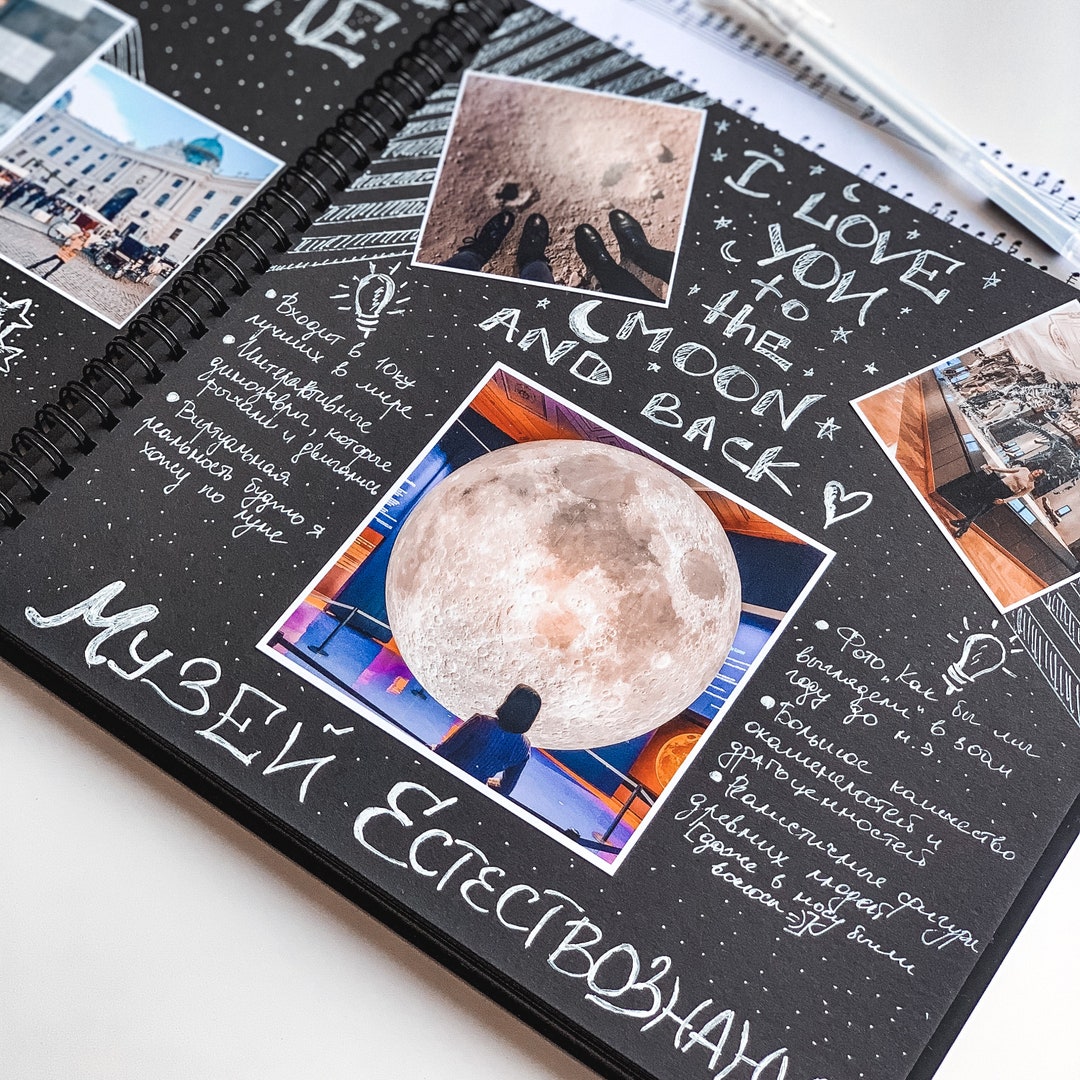 I LOVE
YOU
to
the
MOON
AND BACK
• Входит в 10ку
лучших в мире
• Интерактивные
динозавры, которые
рычали и двигались
• Виртуальная
реальность будто я
хожу по
луне
• Фото „Как бы мы
выглядели" в
году до н.э
• Большое количество
окаменелостей и
драгоценностей
• Реалистичные фигуры
древних людей
(даже в носу были
волосы =))
МУЗЕЙ ЕСТЕСТВОЗНАН